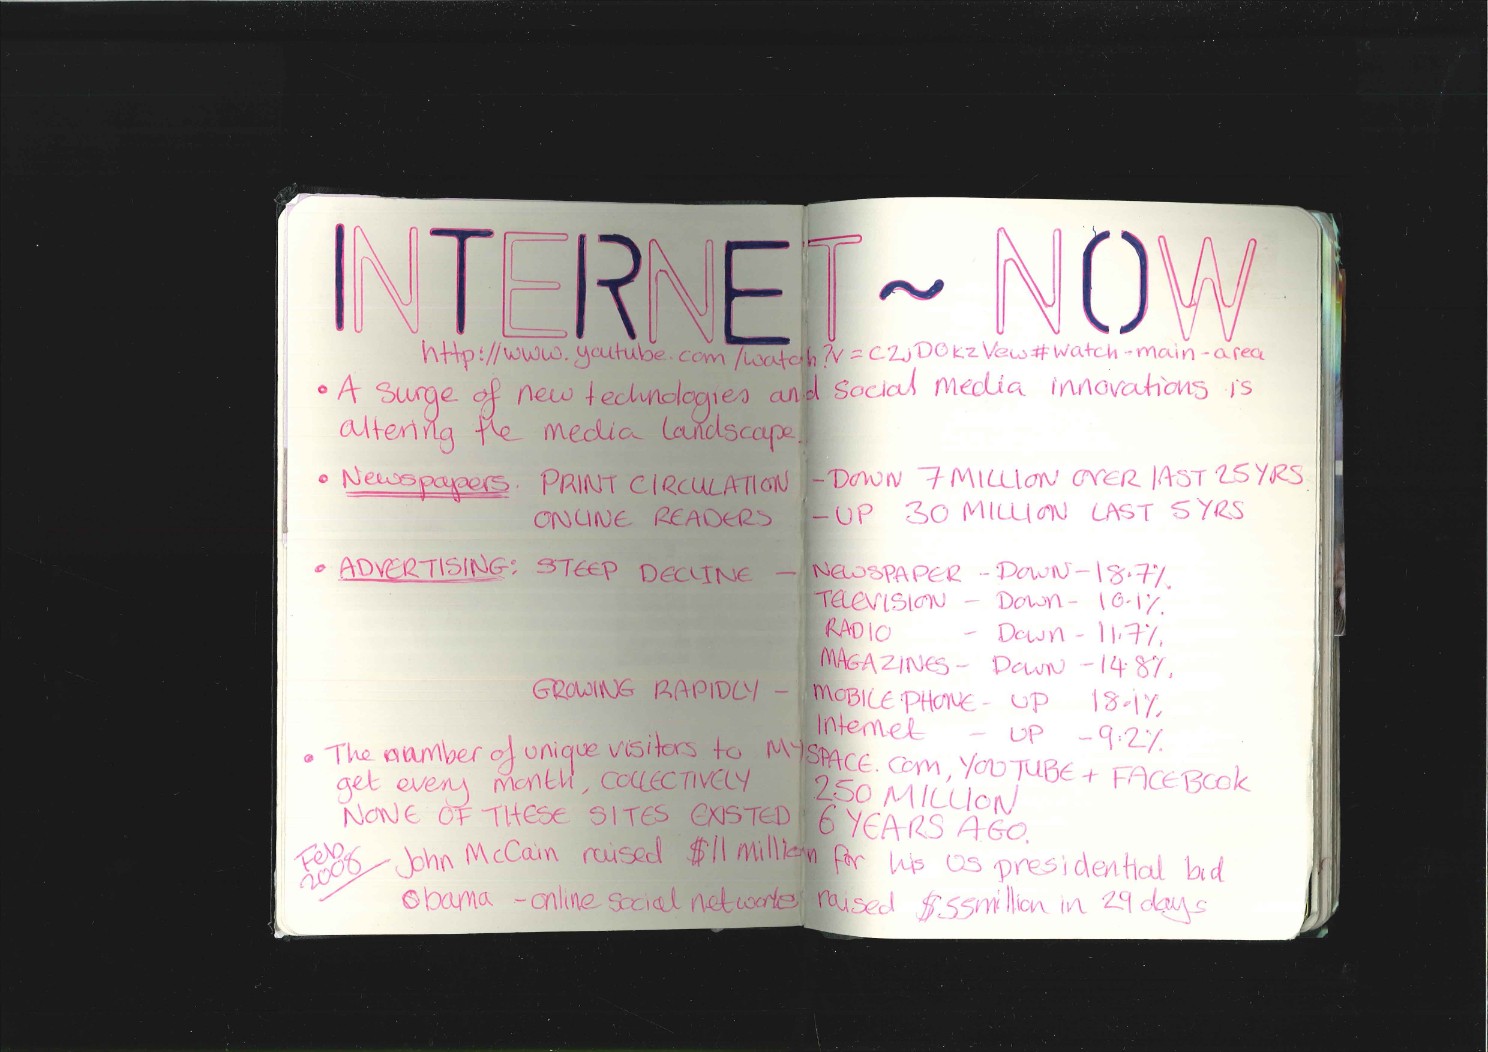 INTERNET ~ NOW
http://www.youtube.com/watch?v=C2jDOkzVew#watch-main-area
• A surge of new technologies and social media innovations is
altering the media landscape.
• Newspapers. PRINT CIRCULATION - DOWN 7 MILLION OVER LAST 25 YRS
ONLINE READERS - UP 30 MILLION LAST 5 YRS
• ADVERTISING: STEEP DECLINE — NEWSPAPER - DOWN - 18.7%
TELEVISION - Down - 10.1%
RADIO - Down - 11.7%
MAGAZINES - Down - 14.8%
GROWING RAPIDLY - MOBILE PHONE - UP 18.1%
Internet - UP - 9.2%
• The number of unique visitors to MYSPACE.com, YOUTUBE + FACEBOOK
get every month, COLLECTIVELY 250 MILLION
NONE OF THESE SITES EXISTED 6 YEARS AGO.
Feb 2008 — John McCain raised $11 million for his US presidential bid
Obama - online social networks raised $55million in 29 days